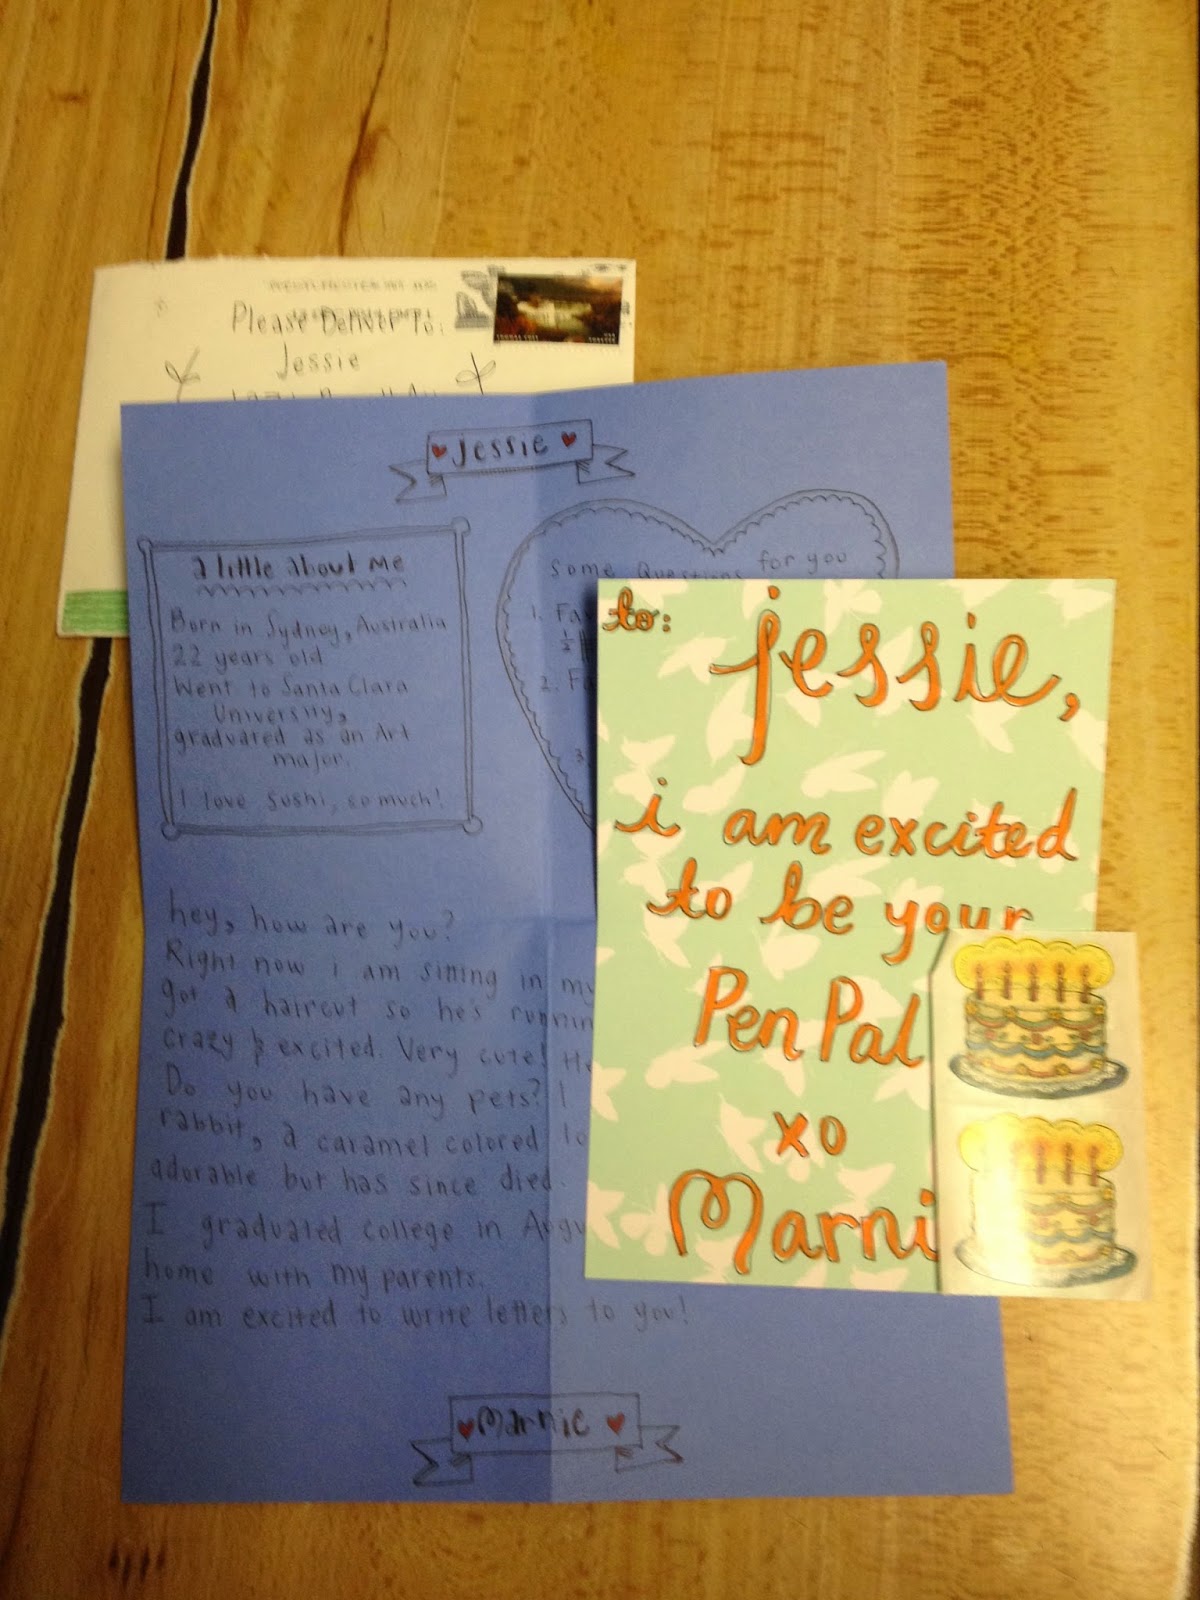 Please Deliver To:
Jessie
Jessie
a little about me
Born in Sydney, Australia
22 years old
Went to Santa Clara
University,
graduated as an Art
major.
I love sushi, so much!
Some Questions for you
1.
1/2
2.
3
hey, how are you?
Right now i am sitting in my
got a haircut so he's
crazy & excited. Very cute! He
Do you have any pets? I
rabbit, a caramel colored lo
adorable but has since died.
I graduated college in Augu
home with my parents.
I am excited to write letters to you!
Marnie
to:
jessie,
i am excited
to be your
Pen Pal
xo
Marni